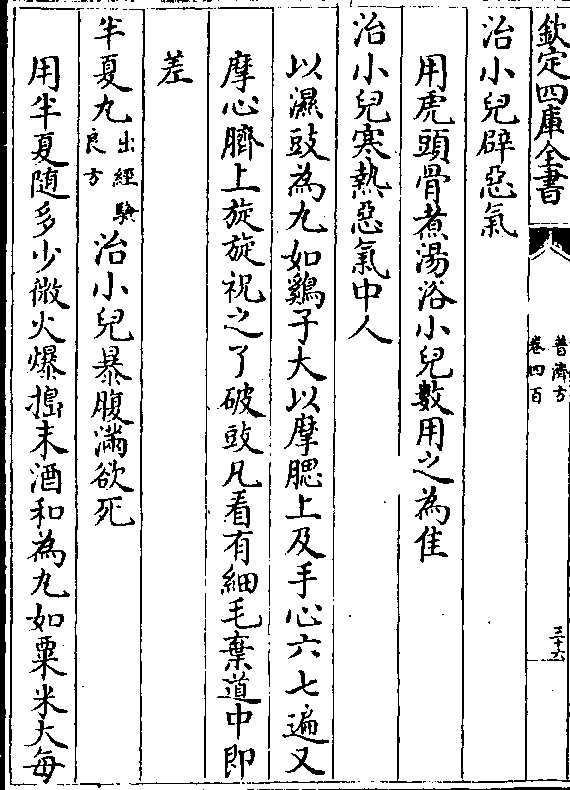 欽定四庫全書
普濟方
卷四百
三十六
治小兒辟惡氣
用虎頭骨煮湯浴小兒數用之為佳
治小兒寒熱惡氣中人
以濕豉為丸如鷄子大以摩腮上及手心六七遍又
摩心臍上旋旋祝之了破豉凡看有細毛棄道中即
差
半夏丸出經驗良方治小兒暴腹滿欲死
用半夏随多少微火爆搗末酒和為丸如粟米大每